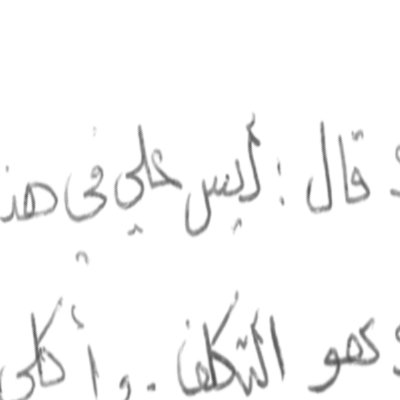 قال : ليس علي في هذ
كهو التكلف . وأكلي